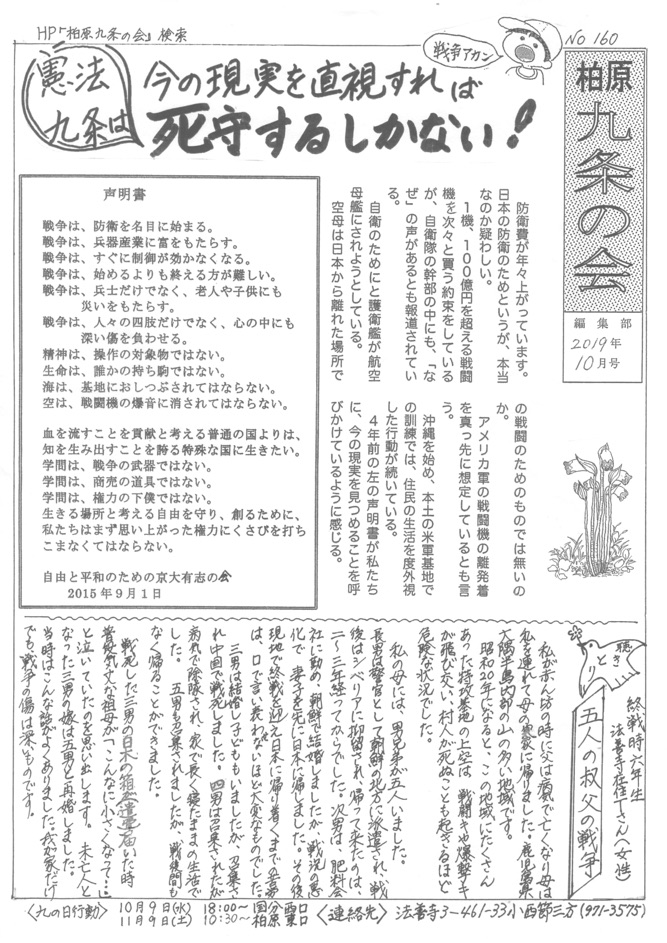 HP「柏原九条の会」検索
戦争アカン
No 160
憲法
九条は
今の現実を直視すれば
死守するしかない！
柏原
九条の会
編集部
2019年
10月号
防衛費が年々上がっています。
日本の防衛のためというが、本当
なのか疑わしい。
1機、100億円を超える戦闘
機を次々と買う約束をしている
が、自衛隊の幹部の中にも、「な
ぜ」の声があるとも報道されてい
る。
自衛のためにと護衛艦が航空
母艦にされようとしている。
空母は日本から離れた場所で
の戦闘のためのものでは無いの
か。
アメリカ軍の戦闘機の離発着
を真っ先に想定しているとも言
う。
沖縄を始め、本土の米軍基地で
の訓練では、住民の生活を度外視
した行動が続いている。
4年前の左の声明書が私たち
に、今の現実を見つめることを呼
びかけているように感じる。
声明書
戦争は、防衛を名目に始まる。
戦争は、兵器産業に富をもたらす。
戦争は、すぐに制御が効かなくなる。
戦争は、始めるよりも終える方が難しい。
戦争は、兵士だけでなく、老人や子供にも
災いをもたらす。
戦争は、人々の四肢だけでなく、心の中にも
深い傷を負わせる。
精神は、操作の対象物ではない。
生命は、誰かの持ち駒ではない。
海は、基地におしつぶされてはならない。
空は、戦闘機の爆音に消されてはならない。
血を流すことを貢献と考える普通の国よりは、
知を生み出すことを誇る特殊な国に生きたい。
学問は、戦争の武器ではない。
学問は、商売の道具ではない。
学問は、権力の下僕ではない。
生きる場所と考える自由を守り、創るために、
私たちはまず思い上がった権力にくさびを打ち
こまなくてはならない。
自由と平和のための京大有志の会
2015年9月1日
聴きとり
五人の叔父の戦争
終戦時六年生
法善寺在住Tさん(女性)
私が赤ん坊の時に父は病気で亡くなり母は
私を連れて母の実家に帰りました。鹿児島県
大隅半島内部の山の多い地域です。
昭和20年になると、この地域にたくさん
あった特攻基地の上空は、戦闘キや爆撃キ
が飛び交い、村人が死ぬことも起きるほど
危険な状況でした。
私の母には、男兄弟が五人いました。
長男は警官として朝鮮の北方に派遣され、戦
後はシベリアに抑留され、帰って来たのは、
二〜三年経ってからでした。次男は、肥料会
社に勤め、朝鮮で結婚しましたが、戦況の悪
化で妻子を先に日本に帰しました。その後
現地で終戦を迎え日本に帰り着くまでの
は、口で言い表わないほど大変なものでした。
三男は結婚し子どももいましたが、召集さ
れ中国で戦死しました。四男は召集されたが
病気で除隊され、家で長く寝たままの生活で
した。五男も召集されましたが、戦後間も
なく帰ることができました。
戦死した三男の白木の箱が届いた時
普段気丈な祖母が「こんなに小さくなって…」
と泣いていたのを思い出します。未亡人と
なった三男の嫁は五男と再婚しました。
当時はこんな話がよくありました。我が家だけ
でも戦争の傷は深いものです。
〈九の日行動〉 10月9日(水) 18:00〜 国分西口
11月9日(土) 10:30〜 柏原東口
〈連絡先〉 法善寺3-461-33小西節三方(971-3575)